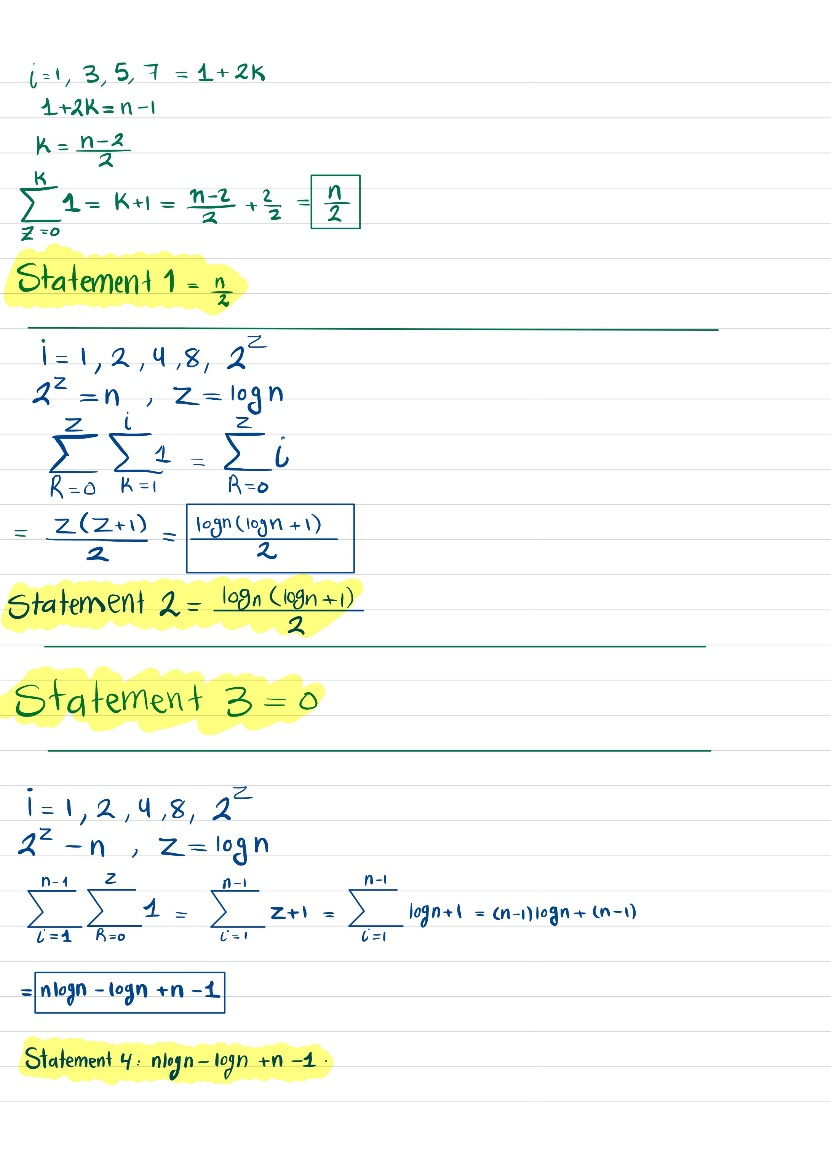 i=1, 3, 5, 7 = 1+2K
1+2K=n-1
K = \frac{n-2}{2}
\sum_{Z=0}^{K} 1 = K+1 = \frac{n-2}{2} + \frac{2}{2} = \frac{n}{2}
Statement 1 = \frac{n}{2}
i = 1, 2, 4, 8, 2^Z
2^Z = n , Z = logn
\sum_{R=0}^{Z} \sum_{K=1}^{i} 1 = \sum_{R=0}^{Z} i
= \frac{Z(Z+1)}{2} = \frac{logn(logn+1)}{2}
Statement 2 = \frac{logn(logn+1)}{2}
Statement 3 = 0
i = 1, 2, 4, 8, 2^Z
2^Z - n , Z = logn
\sum_{i=1}^{n-1} \sum_{R=0}^{Z} 1 = \sum_{i=1}^{n-1} Z+1 = \sum_{i=1}^{n-1} logn+1 = (n-1)logn + (n-1)
= nlogn - logn + n - 1
Statement 4: nlogn - logn + n - 1.